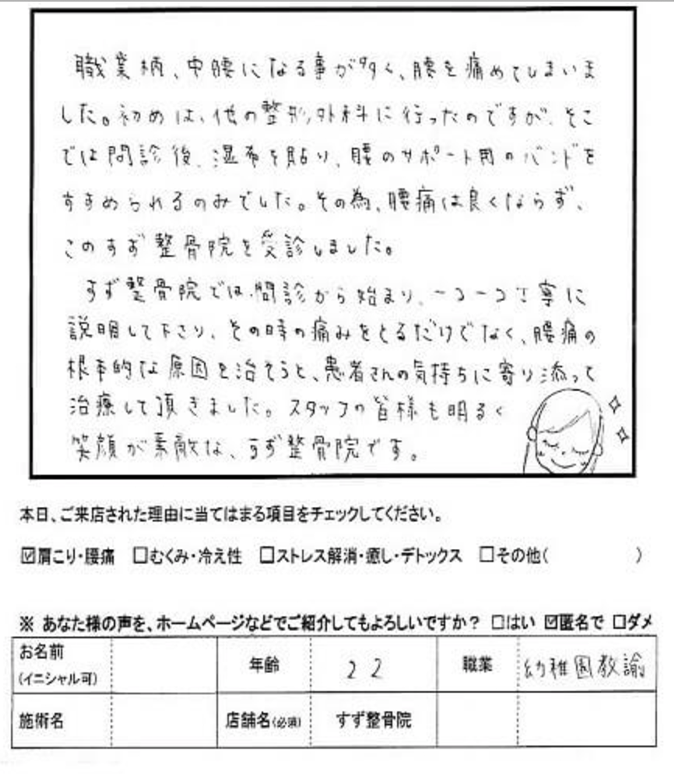 職業柄、中腰になる事が多く、腰を痛めてしまいま
した。初めは、他の整形外科に行ったのですが、そこ
では問診後、湿布を貼り、腰のサポート用のバンドを
すすめられるのみでした。その為、腰痛は良くならず、
このすず整骨院を受診しました。
すず整骨院では、問診から始まり、一つ一つ丁寧に
説明して下さり、その時の痛みをとるだけでなく、腰痛の
根本的な原因を治そうと、患者さんの気持ちに寄り添って
治療して頂きました。スタッフの皆様も明るく
笑顔が素敵な、すず整骨院です。
本日、ご来店された理由に当てはまる項目をチェックしてください。
☑肩こり・腰痛 □むくみ・冷え性 □ストレス解消・癒し・デトックス □その他( )
※ あなた様の声を、ホームページなどでご紹介してもよろしいですか? □はい ☑匿名で □ダメ
お名前
(イニシャル可) 年齢 22 職業 幼稚園教諭
施術名 店舗名(必須) すず整骨院